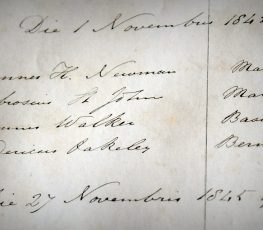 Die 1 Novembris 184
nnes H. Newman Ma
brosius St John Ma
nnes Walker Bas
dericus Oakeley Ber
Die 27 Novembris 1845